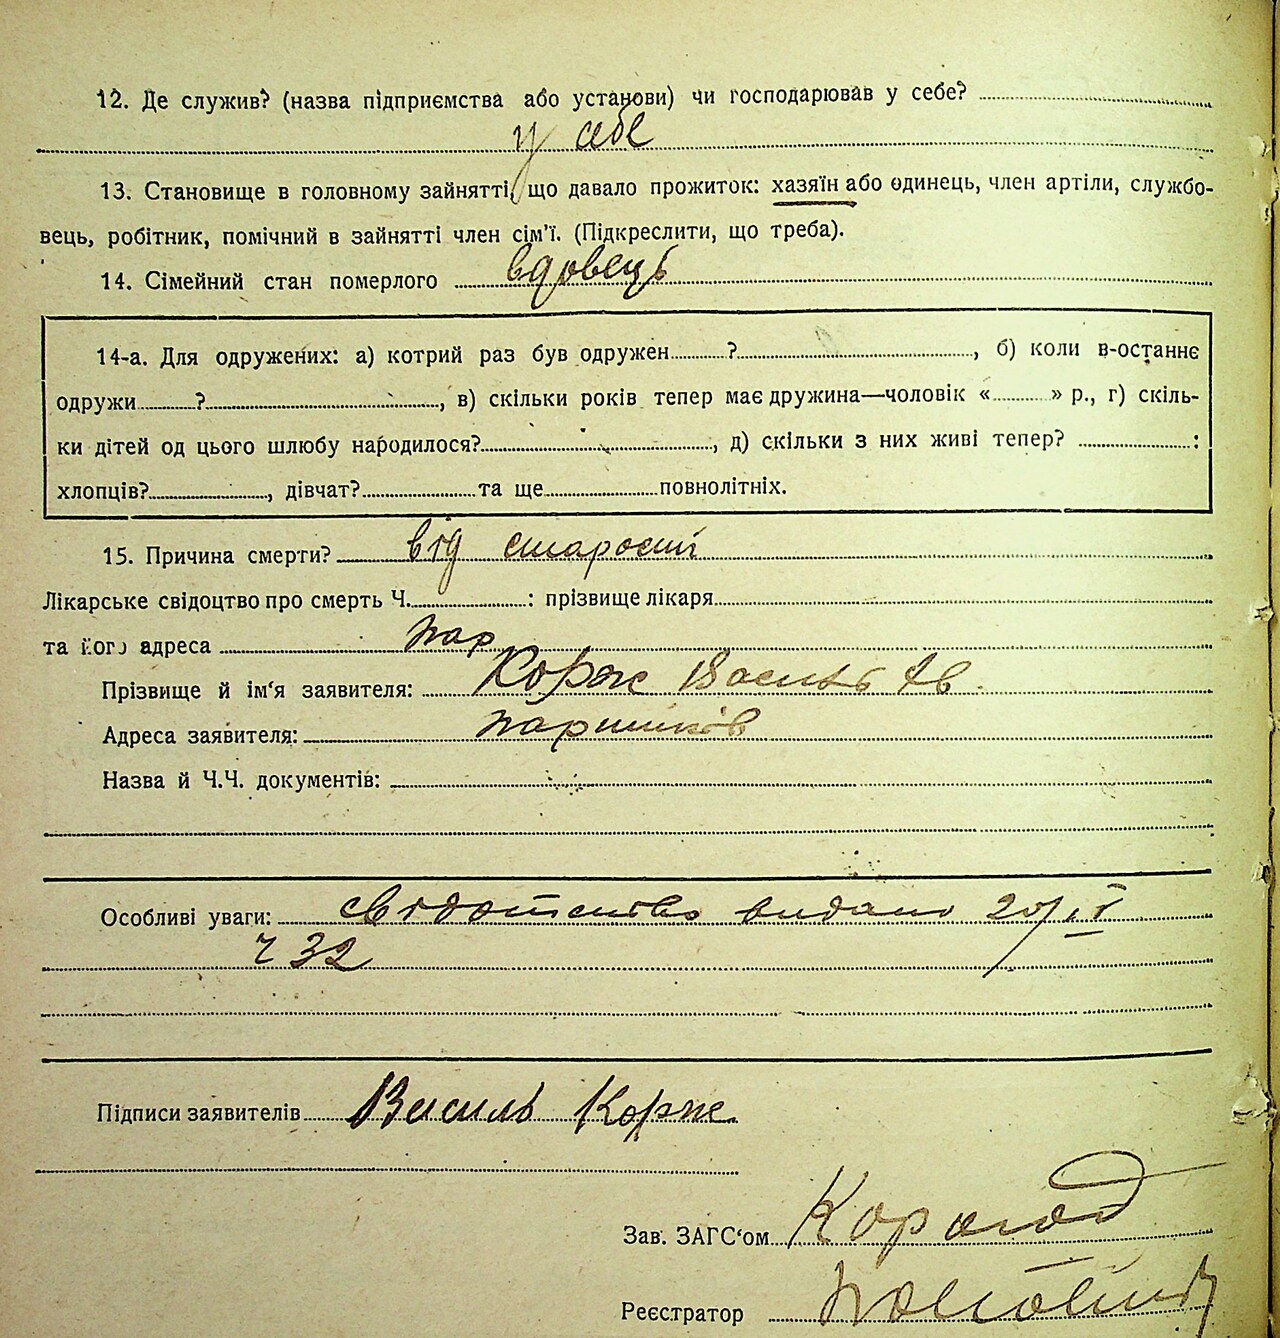 12. Де служив? (назва підприємства або установи) чи господарював у себе?
у себе
13. Становище в головному зайнятті, що давало прожиток: хазяїн або одинець, член артіли, службо-
вець, робітник, помічний в зайнятті член сім'ї. (Підкреслити, що треба).
14. Сімейний стан померлого вдовець
14-а. Для одружених: а) котрий раз був одружен ? , б) коли в-останнє
одружи ? , в) скільки років тепер має дружина—чоловік « » р., г) скіль-
ки дітей од цього шлюбу народилося? , д) скільки з них живі тепер? :
хлопців? , дівчат? та ще повнолітніх.
15. Причина смерти? від старости
Лікарське свідоцтво про смерть Ч. : прізвище лікаря
та його адреса
Прізвище й ім'я заявителя: Корж Василь Ав.
Адреса заявителя:
Назва й Ч.Ч. документів:
Особливі уваги: свідотство видано 20/IV
Ч 32
Підписи заявителів Василь Корж
Зав. ЗАГС'ом
Реєстратор